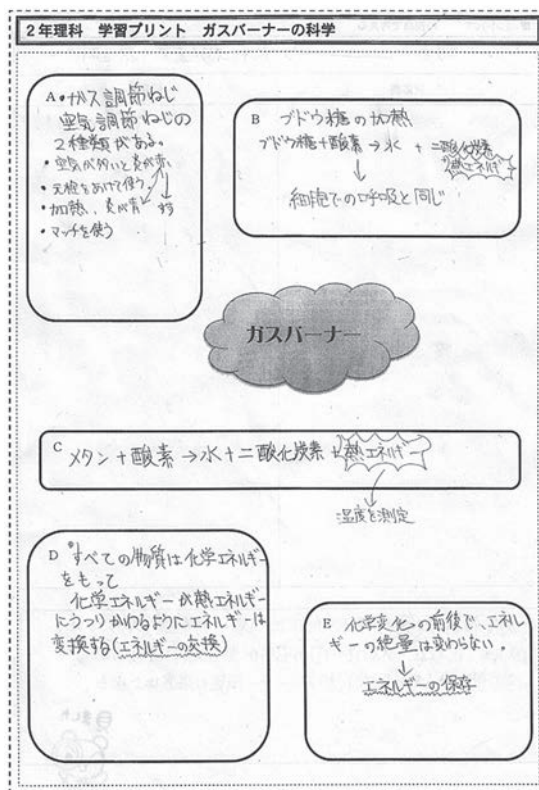 2年理科 学習プリント ガスバーナーの科学
A・ガス調節ねじ
空気調節ねじの
2種類がある。
・空気が多いと炎が赤い
・元栓をあけて使う
・加熱、炎が青
・マッチを使う
B ブドウ糖の加熱
ブドウ糖+酸素→水 + 二酸化炭素
熱エネルギー
↓
細胞での呼吸と同じ
ガスバーナー
C メタン+酸素→水+二酸化炭素+熱エネルギー
温度を測定
D すべての物質は化学エネルギー
をもって
化学エネルギーが熱エネルギー
にうつりかわるようにエネルギーは
変換する(エネルギーの変換)
E 化学変化の前後で、エネル
ギーの総量は変わらない。
↓
エネルギーの保存